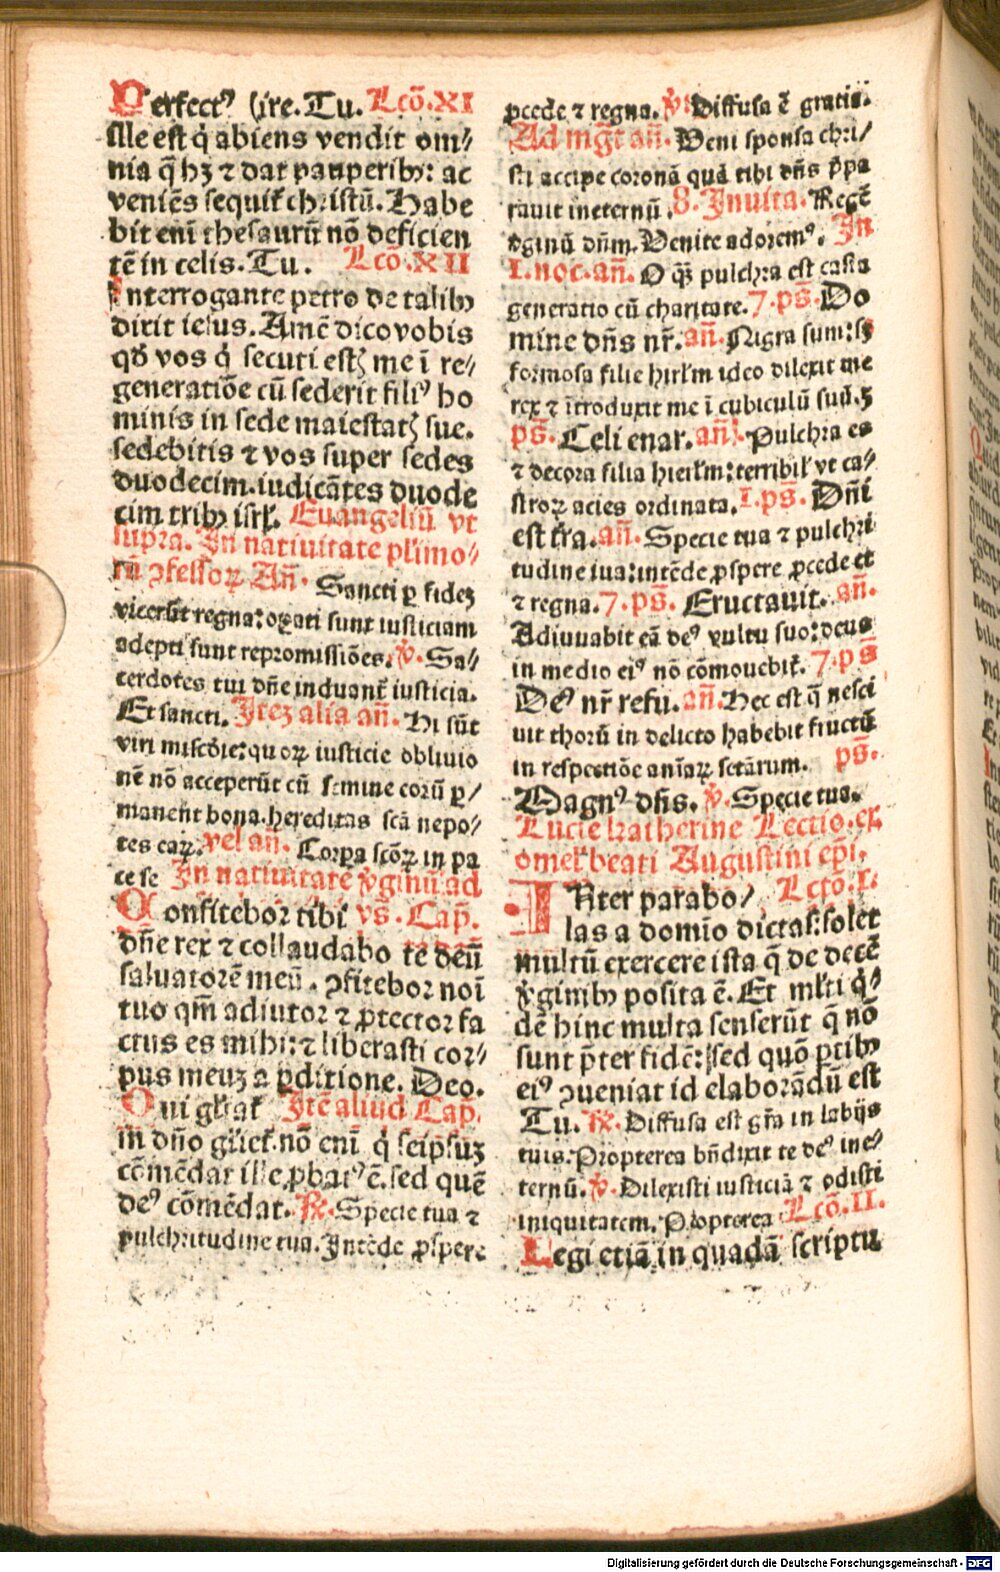 Perfectꝰ ſire. Tu. Lcō. XI
Ille eſt q̇ abiens vendit om⸗
nia q̄ hꝫ ⁊ dat pauperibꝫ: ac
veniēs ſequit̃ chriſtū. Habe
bit eni theſaurū nō deficien
tē in celis. Tu. Lcō. XII
Interrogante petro de talibꝫ
dixit ieſus. Amē dico vobis
qd̄ vos q̇ ſecuti eſtꝭ me ī re⸗
generatiōe cū ſederit filiꝰ ho
minis in ſede maieſtatꝭ ſue.
ſedebitis ⁊ vos ſuper ſedes
duodecim. iudicātes duode
cim tribꝫ iſrl̕. Euangeliū vt
ſupra. In natiuitate pl̕imo⸗
rū ꝯfeſſoꝝ Añ. Sancti ꝑ fideꝫ
vicerūt regna: oꝑati ſunt iuſticiam
adepti ſunt repromiſſiōes. ℣. Sa⸗
cerdotes tui dñe induant̃ iuſticia.
Et ſancti. Iteꝫ alia añ. Hi ſūt
viri miſcd̄ie: quoꝝ iuſticie obliuio
nē nō acceperūt cū ſemine eorū ꝑ⸗
manent bona. hereditas ſcā nepo⸗
tes eaꝝ. vel añ. Corpa ſcōꝝ in pa
ce ſe In natiuitate v̄ginū ad
Confitebor tibi vs̄. Cap̄.
dñe rex ⁊ collaudabo te deū
ſaluatorē meū. ꝯfitebor noī
tuo qm̄ adiutor ⁊ ꝓtector fa
ctus es mihi: ⁊ liberaſti cor⸗
pus meuꝫ a ꝑditione. Deo.
Qui gl̕iat̃ Itē aliud Cap̄.
in dño gl̕iet̃. nō eni q̇ ſeipſuꝫ
cōmēdat ille ꝓbatꝰ ē. ſed quē
deꝰ cōmēdat. ℟. Specie tua ⁊
pulchritudine tua. Intēde ꝓſpere
ꝓcede ⁊ regna. ℣. Diffuſa ē gratia.
Ad mḡt añ. Veni ſponſa chri⸗
ſti accipe coronā quā tibi dñs p̄pa
rauit ineternū. 8. Inuita. Regē
v̄ginū dñm. Venite adoremꝰ. In
I. noc. añ. O q̈ꝫ pulchra eſt caſta
generatio cū charitate. 7. ps̄. Do
mine dñs nr̃. añ. Nigra ſum: ſꝫ
formoſa filie hirl̕m ideo dilexit me
rex ⁊ ītroduxit me ī cubiculū ſuū.
ps̄. Celi enar. añ. Pulchra es
⁊ decora filia hierl̕m: terribil̕ vt ca⸗
ſtroꝝ acies ordinata. I. ps̄. Dñi
eſt t̄ra. añ. Specie tua ⁊ pulchri
tudine tua: intēde ꝓſpere ꝓcede et
⁊ regna. 7. ps̄. Eructauit. añ.
Adiuuabit eā deꝰ vultu ſuo: deus
in medio eiꝰ nō cōmouebit̃. 7. ps̄
Deꝰ nr̃ refu. añ. Hec eſt q̄ neſci
uit thorū in delicto habebit fructū
in reſpectiōe anīaꝝ ſctārum. ps̄.
Magnꝰ dñs. ℣. Specie tua.
Lucie katherine Lectio. ex
omel̕ beati Auguſtini epī.
INter parabo⸗ Lctō. I.
las a domīo dictas: ſolet
multū exercere iſta q̄ de decē
v̄ginibꝫ poſita ē. Et ml̕ti q̇⸗
dē hinc multa ſenſerūt q̄ nō
ſunt p̄ter fidē: ſed quō ꝑtibꝫ
eiꝰ ꝯueniat id elaborādū eſt
Tu. ℟. Diffuſa eſt gr̄a in labijs
tuis. Propterea bñdixit te deꝰ ine⸗
ternū. ℣. Dilexiſti iuſticiā ⁊ odiſti
iniquitatem. Propterea Lcō. II.
Legi etiā in quadā ſcriptu
Digitalisierung gefördert durch die Deutsche Forschungsgemeinschaft - DFG